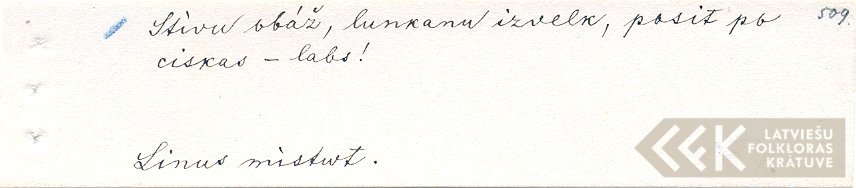 Stivu obāž, lunkanu izvelk, posit po 509.
ciskas – labs!
Linus mistwt.
LATVIEŠU
FOLKLORAS
KRĀTUVE